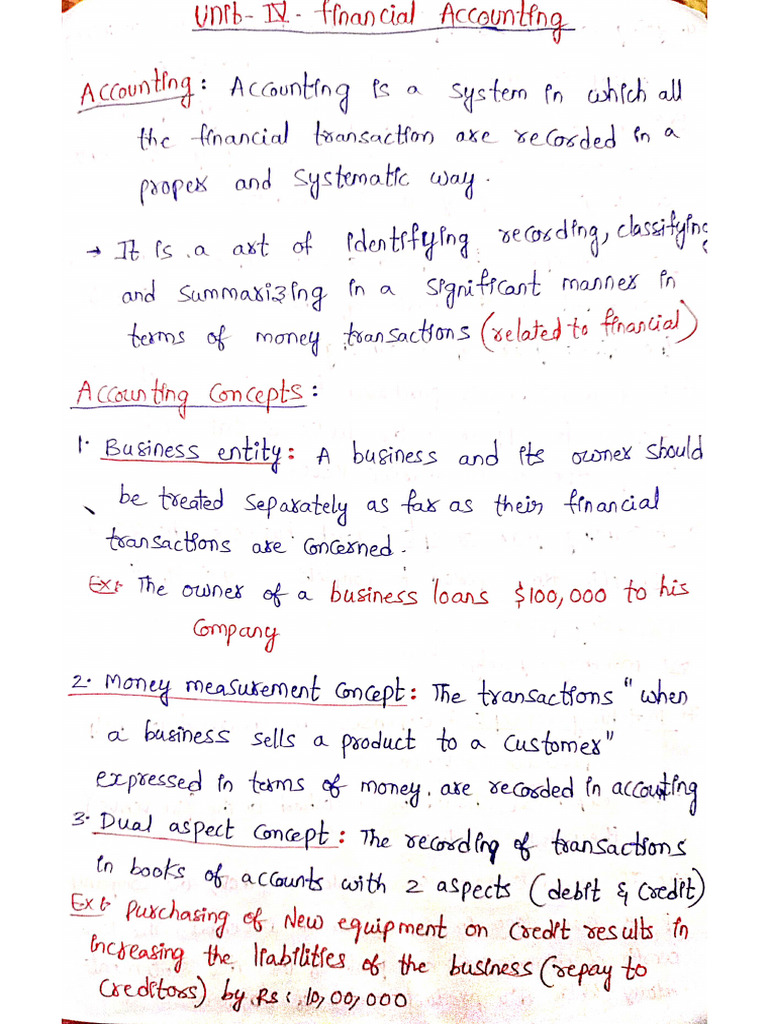 Unit-IV- Financial Accounting
Accounting: Accounting is a system in which all
the financial transaction are recorded in a
proper and systematic way.
→ It is a art of identifying recording, classifying
and summarizing in a significant manner in
terms of money transactions (related to financial)
Accounting Concepts:
1. Business entity: A business and its owner should
be treated separately as far as their financial
transactions are concerned.
Ex: The owner of a business loans $100,000 to his
Company
2. Money measurement concept: The transactions "when
a business sells a product to a customer"
expressed in terms of money. are recorded in accounting
3. Dual aspect concept: The recording of transactions
in books of accounts with 2 aspects (debit & credit)
Ex: Purchasing of New equipment on credit results in
increasing the liabilities of the business (repay to
creditors) by Rs: 10,00,000